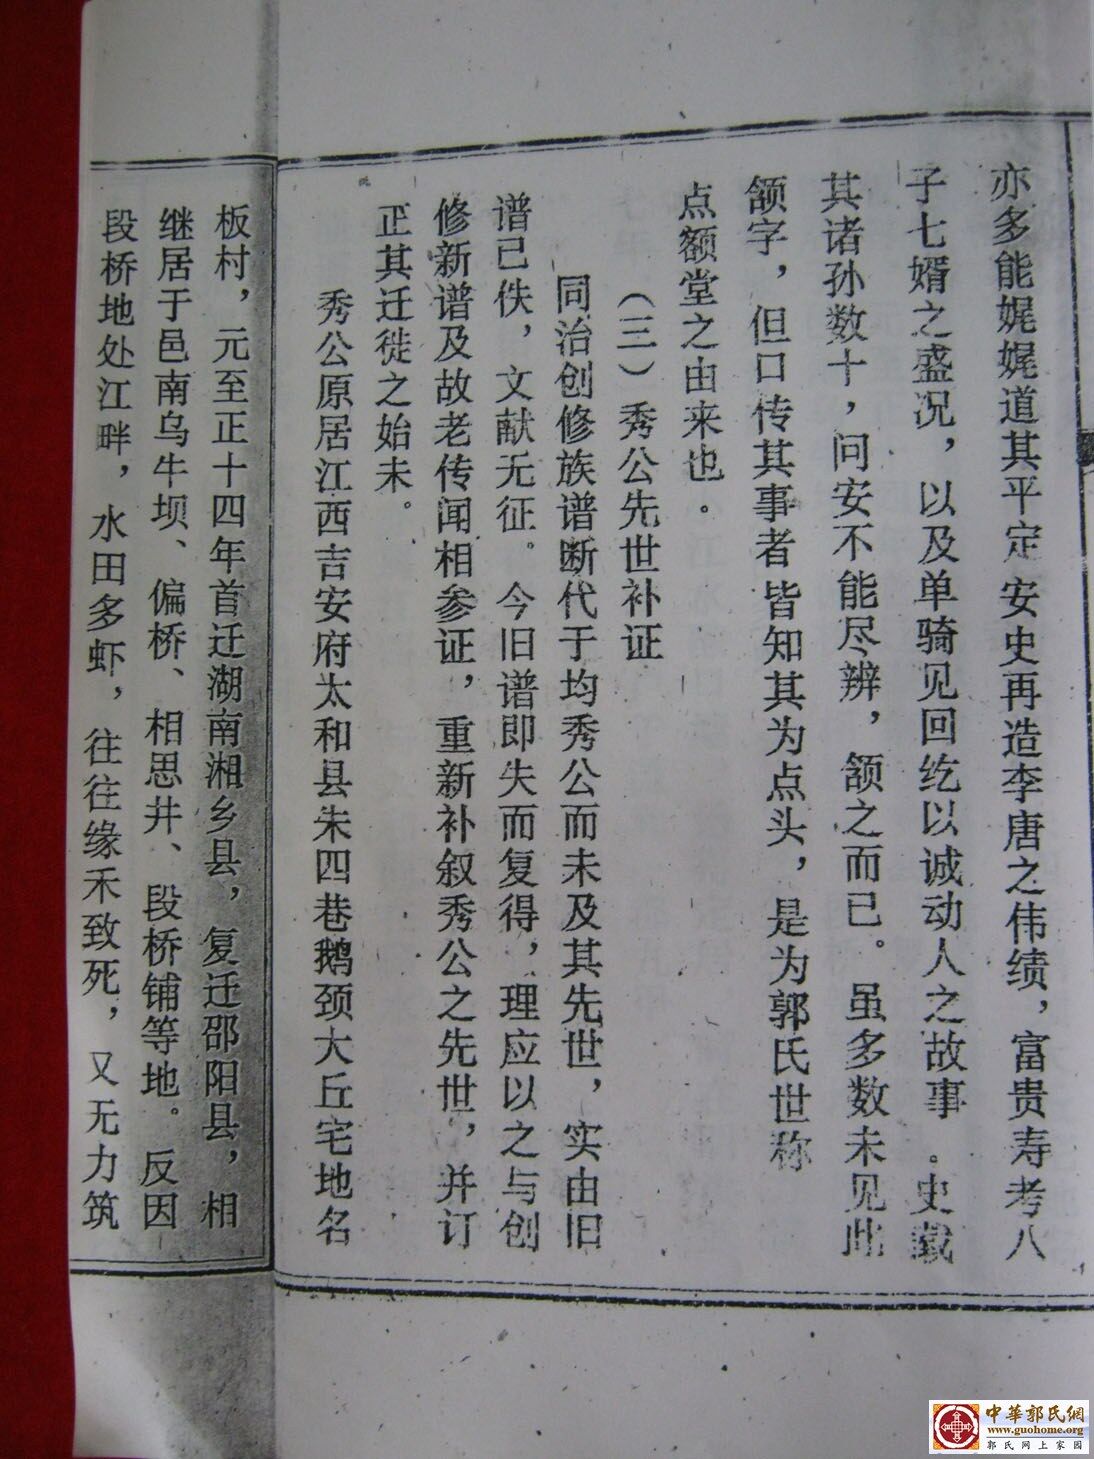 亦多能娓娓道其平定安史再造李唐之伟绩，富贵寿考八
子七婿之盛况，以及单骑见回纥以诚动人之故事。史载
其诸孙数十，问安不能尽辨，颔之而已。虽多数未见此
颔字，但口传其事者皆知其为点头，是为郭氏世称
点额堂之由来也。
（三）秀公先世补证
同治创修族谱断代于均秀公而未及其先世，实由旧
谱已佚，文献无征。今旧谱即失而复得，理应以之与创
修新谱及故老传闻相参证，重新补叙秀公之先世，并订
正其迁徙之始末。
秀公原居江西吉安府太和县朱四巷鹅颈大丘宅地名
板村，元至正十四年首迁湖南湘乡县，复迁邵阳县，相
继居于邑南乌牛坝、偏桥、相思井、段桥铺等地。反因
段桥地处江畔，水田多虾，往往缘禾致死，又无力筑
中華郭氏網
www.guohome.org
郭氏网上家园